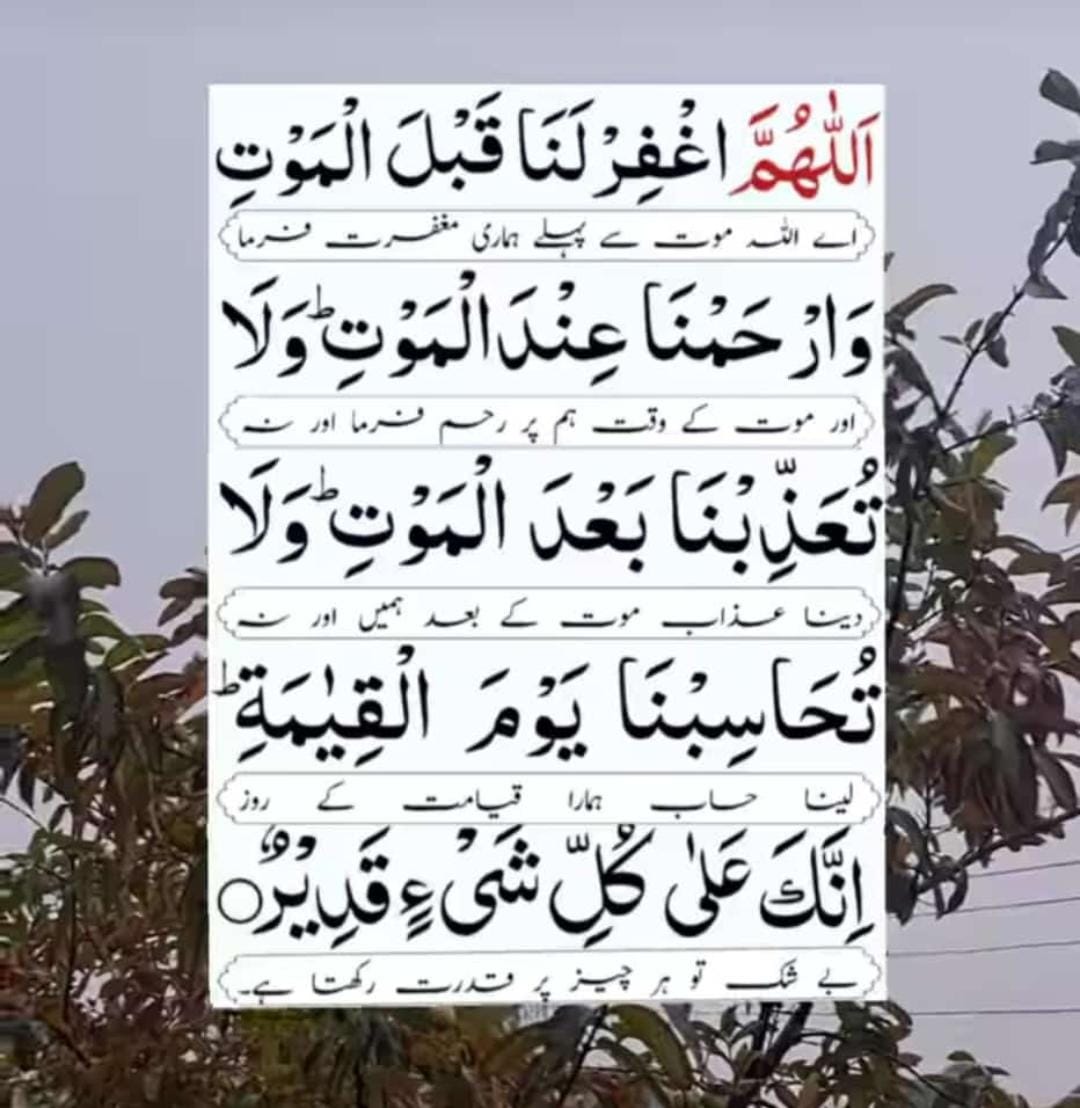 اَللّٰهُمَّ اغْفِرْ لَنَا قَبْلَ الْمَوْتِ
اے اللہ موت سے پہلے ہماری مغفرت فرما
وَارْحَمْنَا عِنْدَ الْمَوْتِ ؕ وَلَا
اور موت کے وقت ہم پر رحم فرما اور نہ
تُعَذِّبْنَا بَعْدَ الْمَوْتِ ؕ وَلَا
دینا عذاب موت کے بعد ہمیں اور نہ
تُحَاسِبْنَا يَوْمَ الْقِيٰمَةِ ؕ
لینا حساب ہمارا قیامت کے روز
اِنَّكَ عَلٰى كُلِّ شَىْءٍ قَدِيْرٌ ○
بے شک تو ہر چیز پر قدرت رکھتا ہے۔